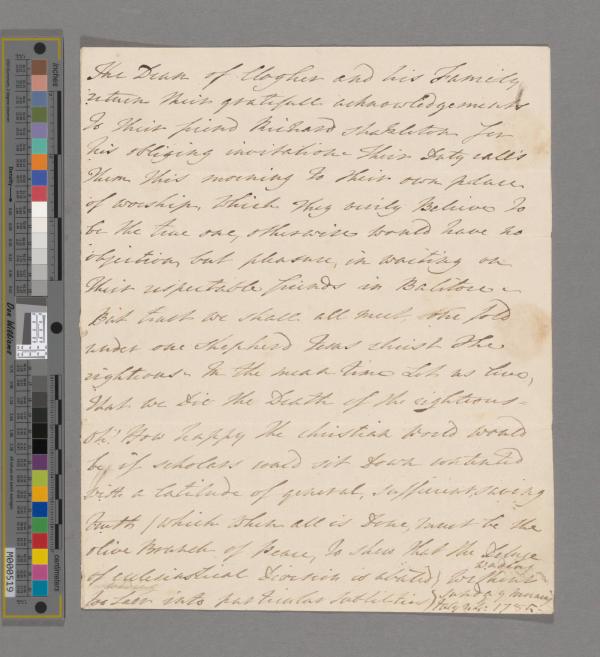 The Dean of Clogher and his Family
return their gratefull acknowledgements
to their friend Richard Shakleton for
his obliging invitation. Their Duty calls
them this morning to their own place
of worship, which they verily Believe to
be the true one, otherwise would have no
objection, but pleasure, in waiting on
their respectable friends in Balitore.
But trust we shall all meet, one fold
under one shepherd Jesus christ the
righteous. In the mean time Let us live,
that we Die the Death of the righteous
Oh! How happy the christian World would
be, if scholars would sit Down contented
with a latitude of general, sufficient, saving
Truth (which when all is Done, must be the
olive Branch of Peace, to shew that the Deluge
of eclesiastical Division is abated) without
too into particular subtilities
Sunday morning
July 1785
inches
centimeters
Don Williams
M000519